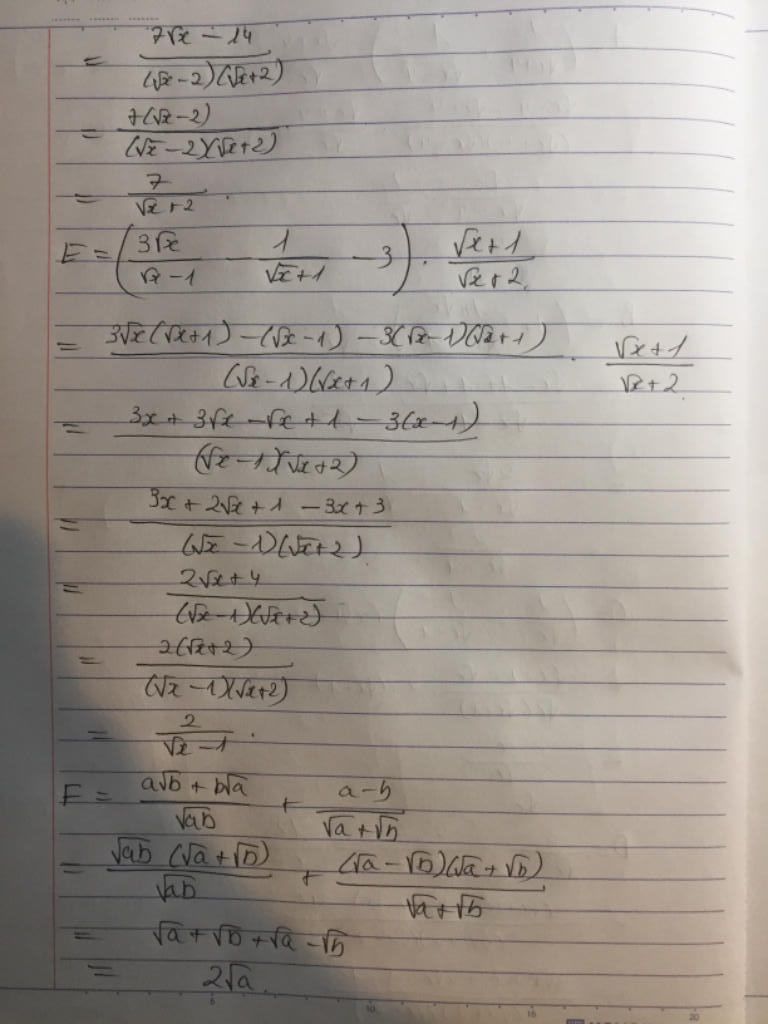 = (7√x − 14)/((√x − 2)(√x + 2))
= 7(√x − 2)/((√x − 2)(√x + 2))
= 7/(√x + 2).
E = (3√x/(√x − 1) − 1/(√x + 1) − 3) . (√x + 1)/(√x + 2).
= (3√x(√x + 1) − (√x − 1) − 3(√x − 1)(√x + 1))/((√x − 1)(√x + 1)) . (√x + 1)/(√x + 2).
= (3x + 3√x − √x + 1 − 3(x − 1))/((√x − 1)(√x + 2))
= (3x + 2√x + 1 − 3x + 3)/((√x − 1)(√x + 2))
= (2√x + 4)/((√x − 1)(√x + 2))
= 2(√x + 2)/((√x − 1)(√x + 2))
= 2/(√x − 1).
F = (a√b + b√a)/√ab + (a − b)/(√a + √b)
= √ab (√a + √b)/√ab + (√a − √b)(√a + √b)/(√a + √b)
= √a + √b + √a − √b
= 2√a.
5 10 15 20